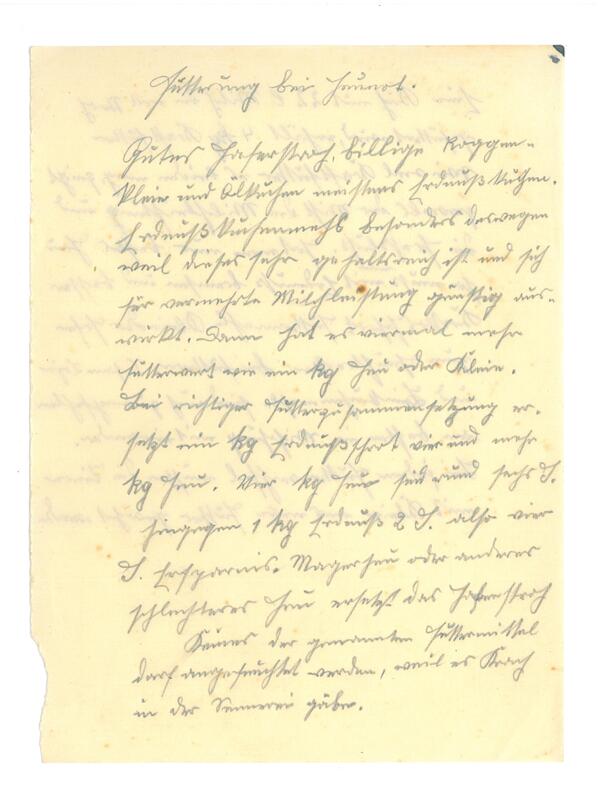 Fütterung bei Heunot.
Gutes Haferstroh, billige Roggen-
kleie und Ölkuchen meistens Erdnußkuchen.
Erdnußkuchenmehl besonders deswegen
weil dieses sehr gehaltsreich ist und sich
für vermehrte Milchleistung günstig aus-
wirkt. Dann hat es viermal mehr
Futterwert wie ein kg Heu oder Kleie.
Bei richtiger Futterzusammensetzung er-
setzt ein kg Erdnußschrot vier und mehr
kg Heu. Vier kg Heu sind rund sechs S.
hingegen 1 kg Erdnuß 2 S. also vier
S. Ersparnis. Magerheu oder anderes
schlechteres Heu ersetzt das Haferstroh
Keines der genannten Futtermittel
darf angefeuchtet werden, weil es Krach
in der Sennerei gäbe.